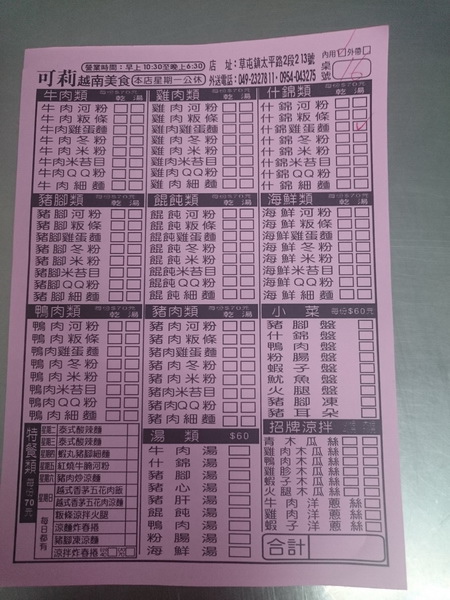 營業時間：早上10:30至晚上6:30
可莉越南美食 本店星期一公休
店 址：草屯鎮太平路2段213號
外送電話：049-2327811．0954-043275
內用 外帶
桌號 16
牛肉類 每份$70元 乾 湯
牛肉河粉
牛肉粄條
牛肉雞蛋麵
牛肉冬粉
牛肉米粉
牛肉米苔目
牛肉QQ粉
牛肉細麵
雞肉類 每份$70元 乾 湯
雞肉河粉
雞肉粄條
雞肉雞蛋麵
雞肉冬粉
雞肉米粉
雞肉米苔目
雞肉QQ粉
雞肉細麵
什錦類 每份$70元 乾 湯
什錦河粉
什錦粄條
什錦雞蛋麵
什錦冬粉
什錦米粉
什錦米苔目
什錦QQ粉
什錦細麵
豬腳類 每份$70元 乾 湯
豬腳河粉
豬腳粄條
豬腳雞蛋麵
豬腳冬粉
豬腳米粉
豬腳米苔目
豬腳QQ粉
豬腳細麵
餛飩類 每份$70元 乾 湯
餛飩河粉
餛飩粄條
餛飩雞蛋麵
餛飩冬粉
餛飩米粉
餛飩米苔目
餛飩QQ粉
餛飩細麵
海鮮類 每份$70元 乾 湯
海鮮河粉
海鮮粄條
海鮮雞蛋麵
海鮮冬粉
海鮮米粉
海鮮米苔目
海鮮QQ粉
海鮮細麵
鴨肉類 每份$70元 乾 湯
鴨肉河粉
鴨肉粄條
鴨肉雞蛋麵
鴨肉冬粉
鴨肉米粉
鴨肉米苔目
鴨肉QQ粉
鴨肉細麵
豬肉類 每份$70元 乾 湯
豬肉河粉
豬肉粄條
豬肉雞蛋麵
豬肉冬粉
豬肉米粉
豬肉米苔目
豬肉QQ粉
豬肉細麵
小菜 每份$60元
豬腳盤
什錦盤
鴨肉盤
粉腸盤
蝦子盤
魷魚盤
火腿盤
豬腳凍
豬耳朵
特餐類 每份70元
星期二 泰式酸辣麵
星期三 泰式酸辣麵
星期四 蝦丸豬腳細麵
星期五 紅燒牛腩河粉
星期六 豬肉炒涼麵
星期日 越式香茅五花肉飯
越式香茅五花肉涼麵
粄條涼拌火腿
每日都有 涼麵炸春捲
豬腳凍涼麵
涼拌炸春捲
湯類 $60
牛肉湯
什錦湯
豬腳湯
豬心湯
豬肝湯
餛飩湯
鴨肉湯
粉腸湯
海鮮湯
招牌涼拌
青木瓜絲
雞肉木瓜絲
鴨肉木瓜絲
雞胗木瓜絲
蝦子木瓜絲
火腿木瓜絲
牛肉洋蔥絲
雞肉洋蔥絲
蝦子洋蔥絲
合計